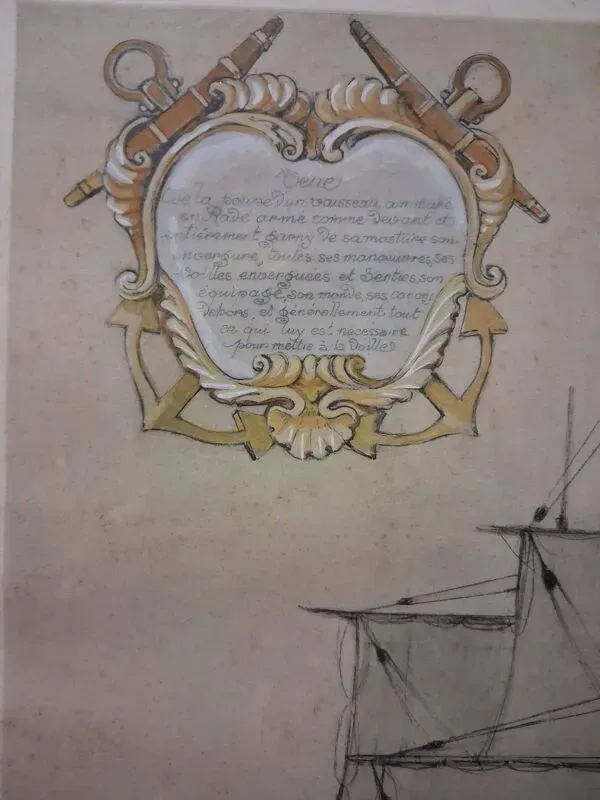 Veüe
de la poupe d'un vaisseau ammaré
en Rade armé comme devant et
entièrement garny de sa mature son
envergure, toutes ses manœuvres, ses
Voilles enverguées et Serrées, son
équipage, son monde, ses canons
dehors, et générallement tout
ce qui luy est necessaire
pour mettre à la Voille